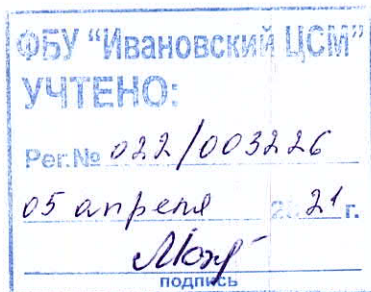 ФБУ "Ивановский ЦСМ"
УЧТЕНО:
Рег.№ 022/003226
05 апреля 2021 г.
подпись